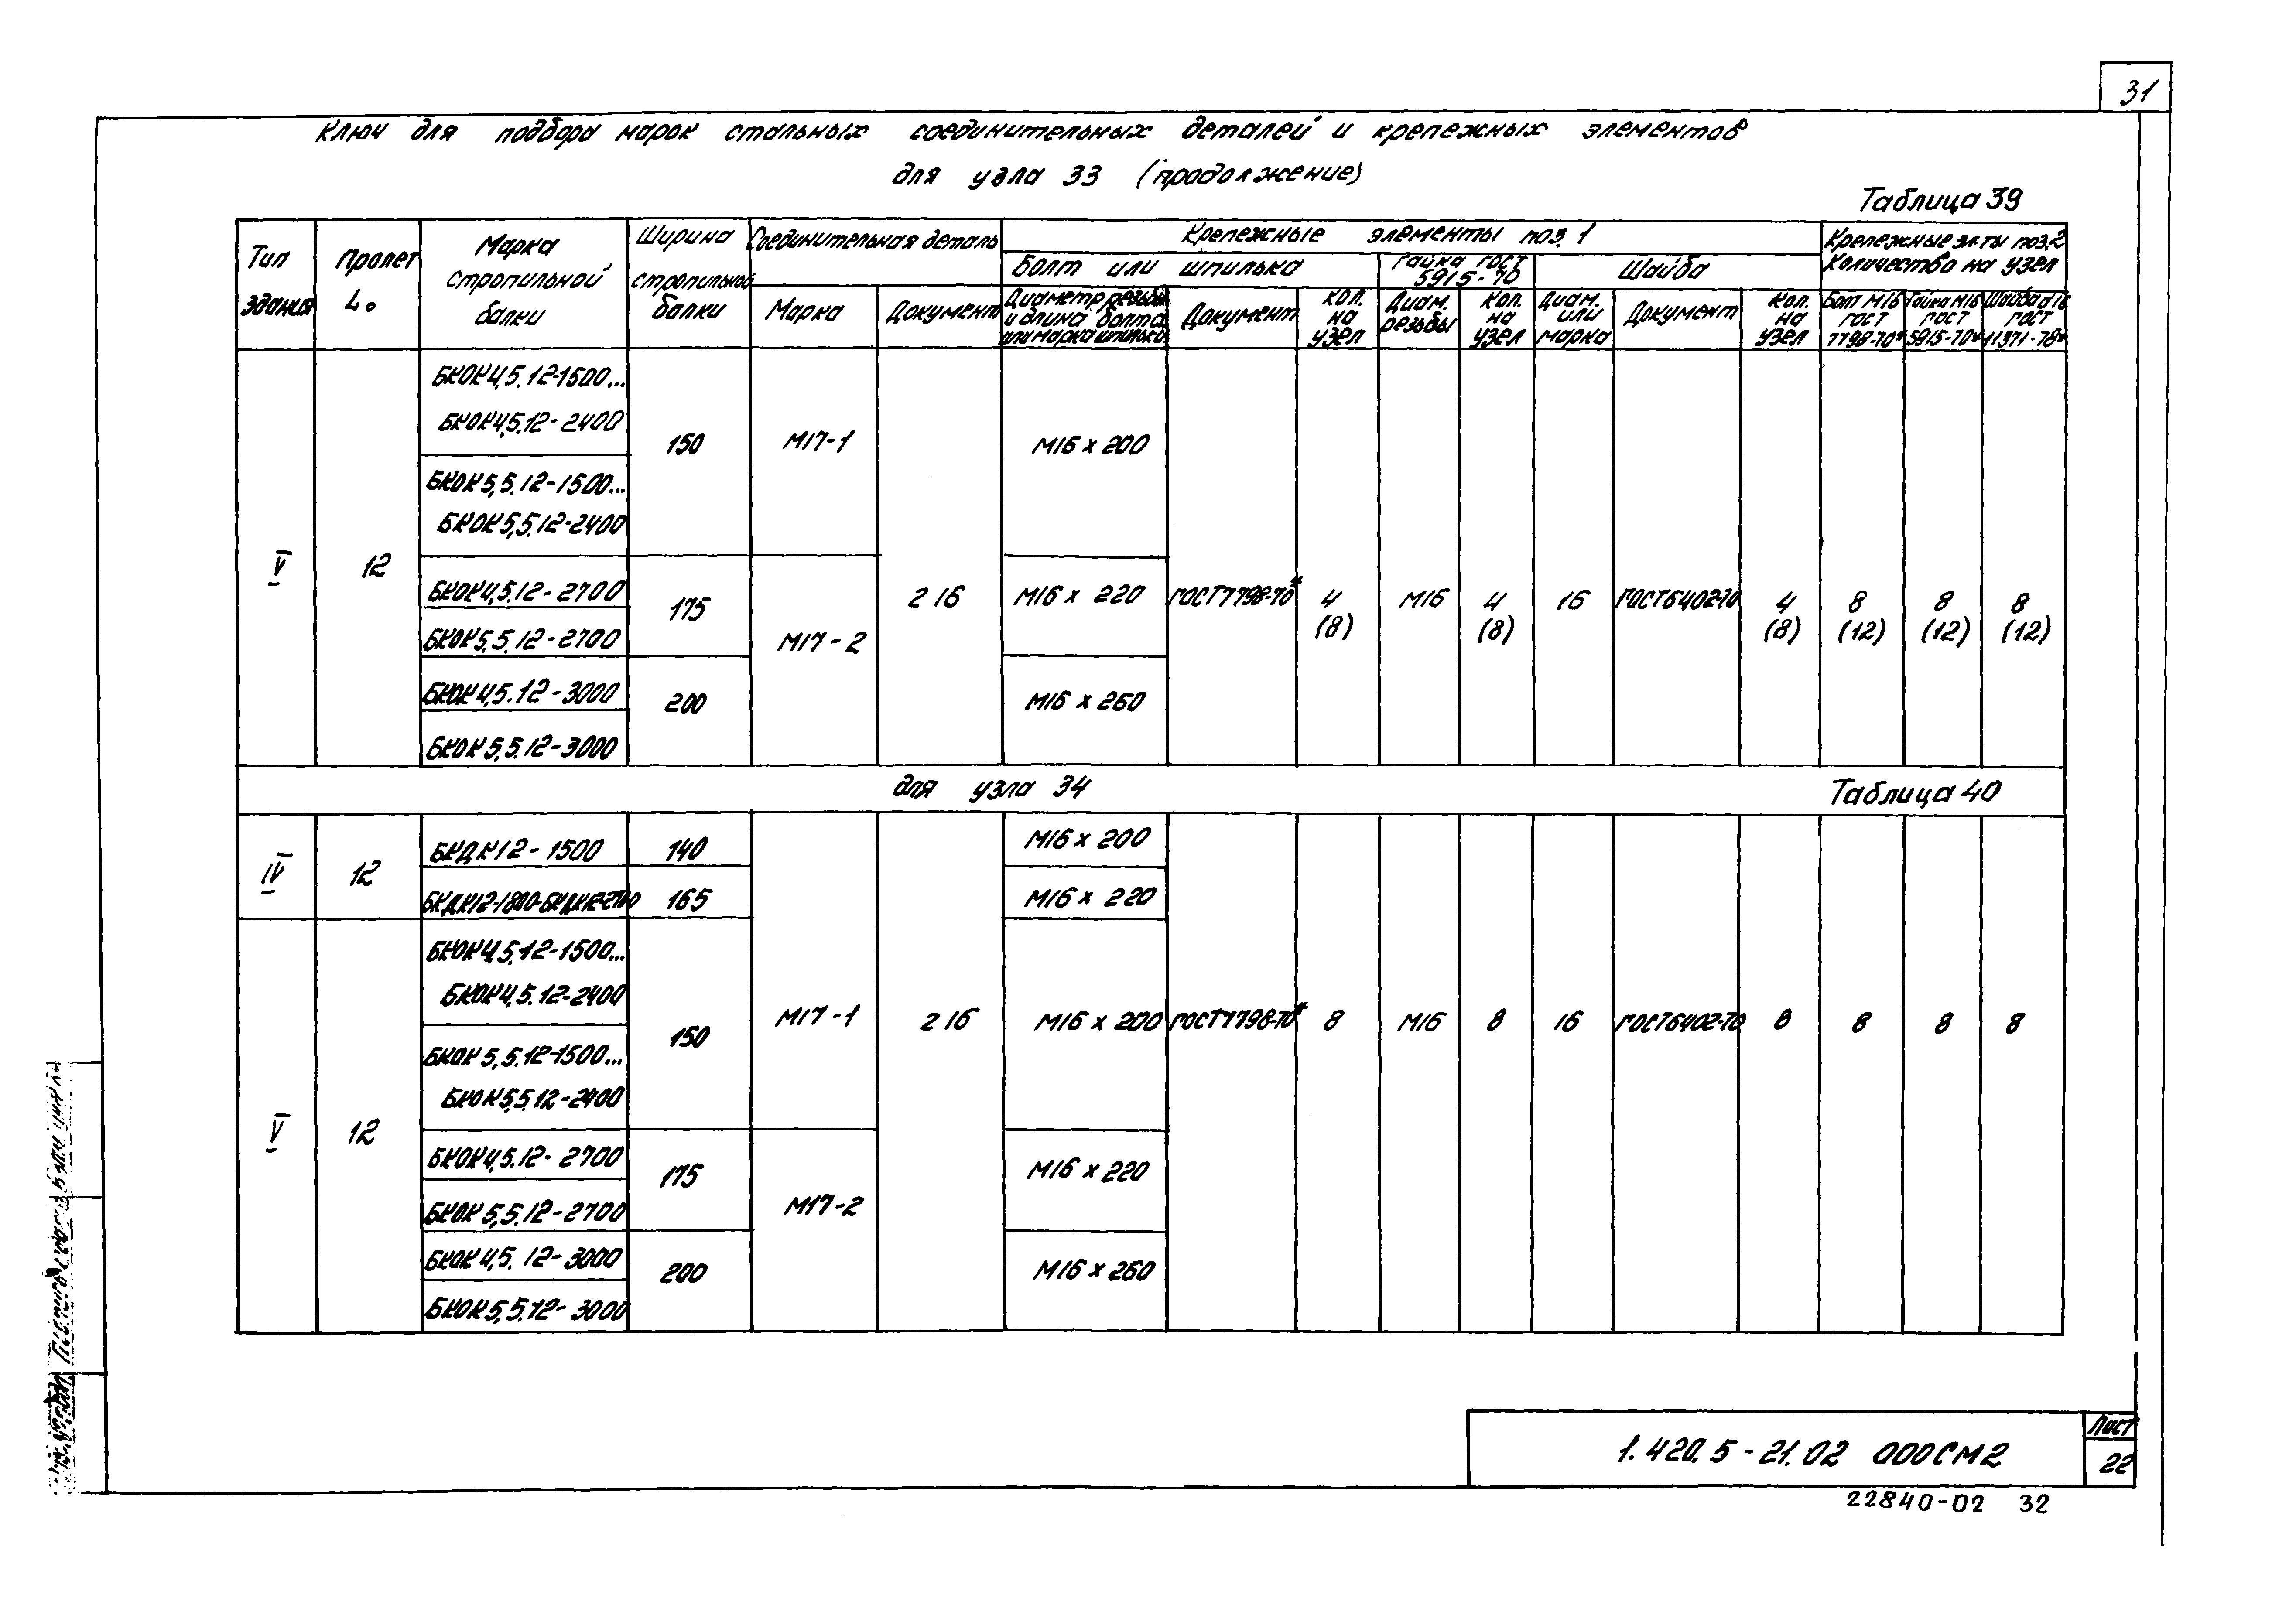 31
Ключ для подбора марок стальных соединительных деталей и крепежных элементов
для узла 33 (продолжение)
Таблица 39
Тип здания
Пролет Lо
Марка стропильной балки
Ширина стропильной балки
Соединительная деталь
Марка
Документ
Крепежные элементы поз. 1
Болт или шпилька
Диаметр резьбы и длина болта или марка шпильки
Документ
Кол. на узел
Гайка ГОСТ 5915-70
Диам. резьбы
Кол. на узел
Шайба
Диам. или марка
Документ
Кол. на узел
Крепежные эл-ты поз.2
Количество на узел
Болт М16 ГОСТ 7798-70*
Гайка М16 ГОСТ 5915-70*
Шайба ø16 ГОСТ 11371-78*
БКОК4,5.12-1500...
БКОК4,5.12-2400
150
М17-1
М16 х 200
БКОК5,5.12-1500...
БКОК5,5.12-2400
V
12
БКОК4,5.12-2700
175
2 16
М16 х 220
ГОСТ7798-70*
4 (8)
М16
4 (8)
16
ГОСТ6402-70
4 (8)
8 (12)
8 (12)
8 (12)
БКОК5,5.12-2700
М17-2
БКОК4,5.12-3000
200
М16 х 260
БКОК5,5.12-3000
для узла 34
Таблица 40
IV
12
БКДК12-1500
140
М16 х 200
БКДК12-1800-БКДК12-2700
165
М16 х 220
БКОК4,5.12-1500...
БКОК4,5.12-2400
150
М17-1
2 16
М16 х 200
ГОСТ7798-70*
8
М16
8
16
ГОСТ6402-70
8
8
8
8
БКОК5,5.12-1500...
БКОК5,5.12-2400
V
12
БКОК4,5.12-2700
175
М16 х 220
БКОК5,5.12-2700
М17-2
БКОК4,5.12-3000
200
М16 х 260
БКОК5,5.12-3000
1.420.5-21.02 000СМ2
Лист
22
22840-02 32